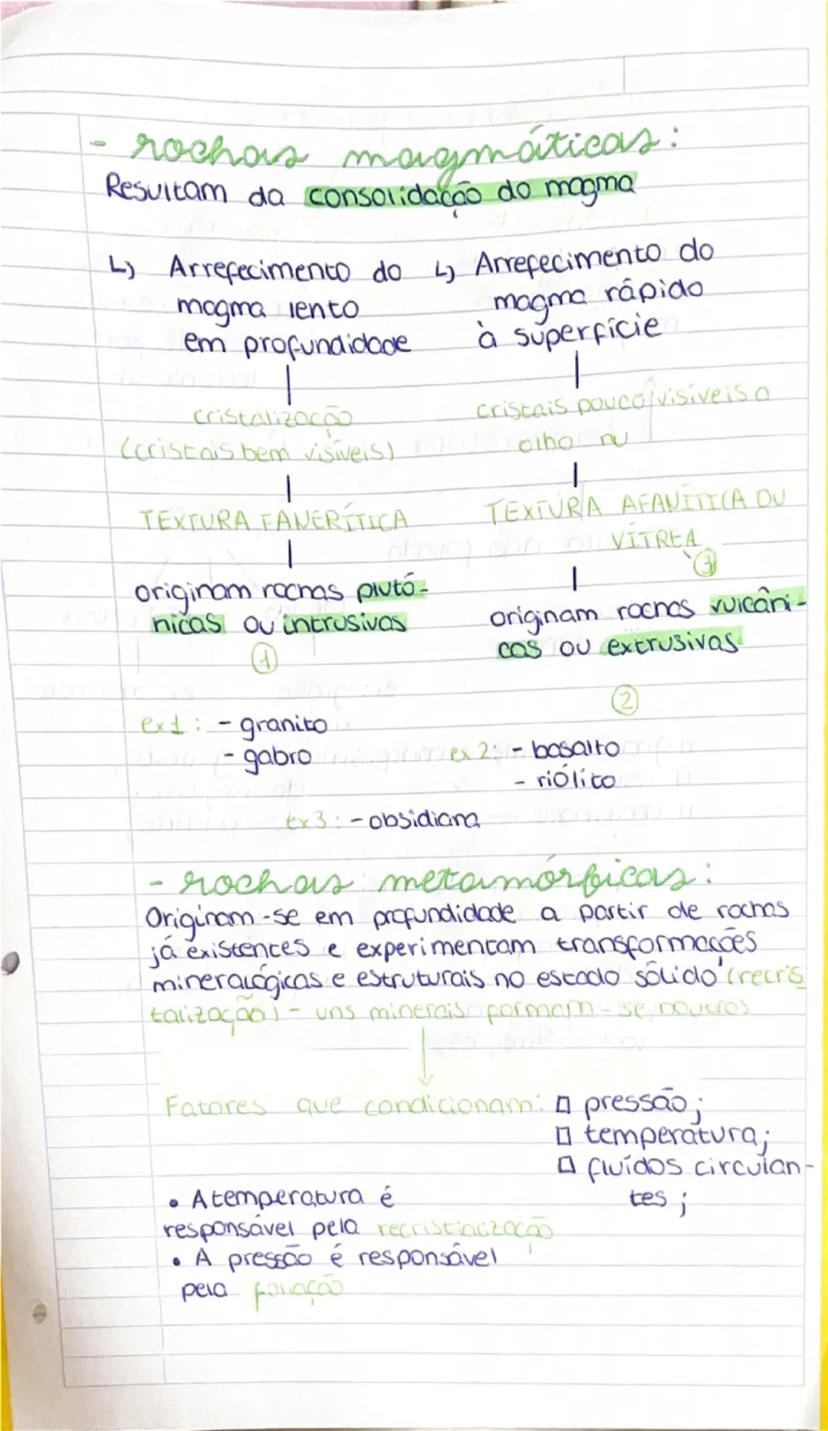 - rochas magmáticas:
Resultam da consolidação do magma
↳ Arrefecimento do
magma lento
em profundidade
|
cristalização
(cristais bem visíveis)
|
TEXTURA FANERÍTICA
|
originam rochas plutó-
nicas ou intrusivas
①
ex1: - granito
- gabro
↳ Arrefecimento do
magma rápido
à superfície
|
cristais pouco visíveis a
olho nu
|
TEXTURA AFANÍTICA OU
VÍTREA
③
|
originam rochas vulcâni-
cas ou extrusivas
②
ex2: - basalto
- riólito
ex3: - obsidiana
- rochas metamórficas:
Originam-se em profundidade a partir de rochas
já existentes e experimentam transformações
mineralógicas e estruturais no estado sólido (recris
talização) - uns minerais formam-se noutros
↓
Fatores que condicionam: □ pressão;
□ temperatura;
□ fluídos circulan-
tes;
• A temperatura é
responsável pela recristialização
• A pressão é responsável
pela foliação